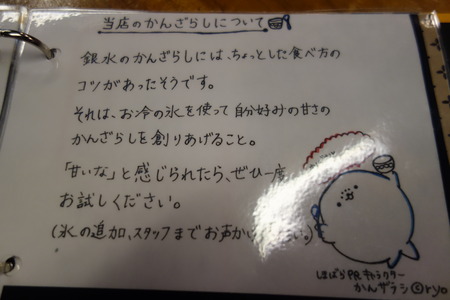 当店のかんざらしについて
銀水のかんざらしには、ちょっとした食べ方の
コツがあったそうです。
それは、お冷の氷を使って自分好みの甘さの
かんざらしを創りあげること。
「甘いな」と感じられたら、ぜひ一度
お試しください。
(氷の追加、スタッフまでお声か い。)
しまばらPRキャラクター
かんザラシ©ryo